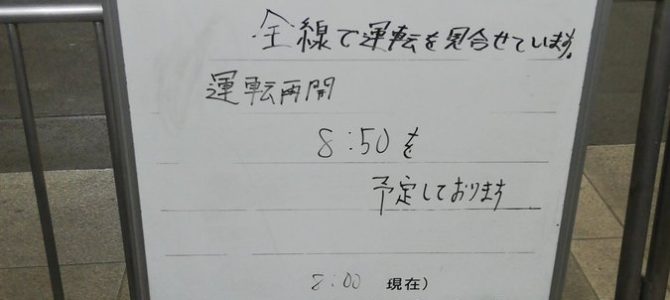 全線で運転を見合せています。
運転再開
8:50を
予定しております
8:00 現在)